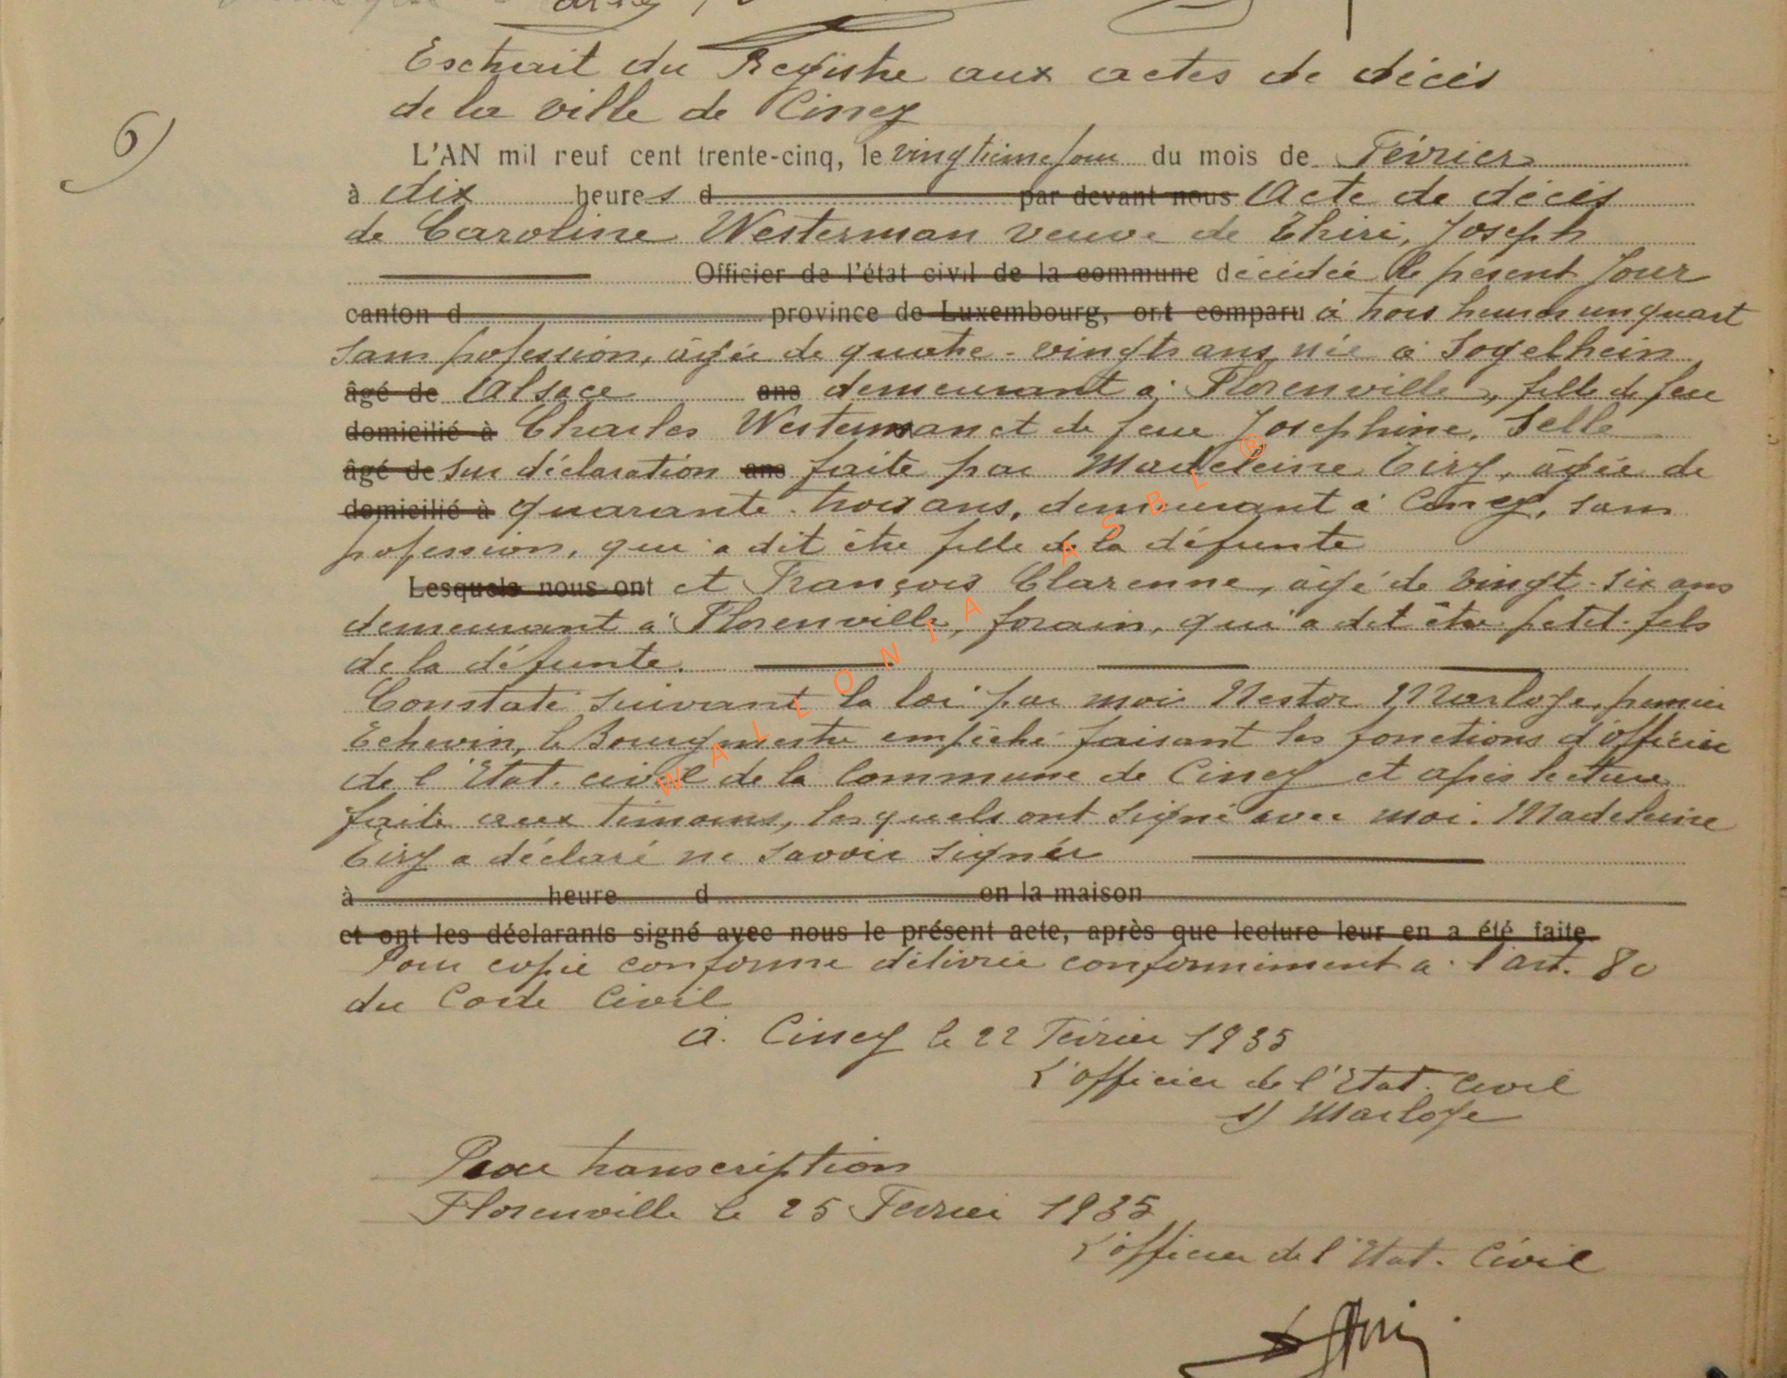 Extrait du Registre aux actes de décès
de la ville de Ciney
6)
L'AN mil neuf cent trente-cinq, le vingtième jour du mois de Février
à dix heures d par devant nous Acte de décès
de Caroline Westerman veuve de Thiri, Joseph
Officier de l'état civil de la commune décédée le présent jour
canton d province de Luxembourg, ont comparu à trois heures un quart
sans profession, âgée de quatre-vingts ans, née à Sogelhein
âgé de Alsace ans demeurant à Florenville, fille de feu
domicilié à Charles Westerman et de feue Josephine, Selle
âgé de sur déclaration ans faite par Madeleine Ciry, âgée de
domicilié à quarante-trois ans, demeurant à Ciney, sans
profession, qui a dit être fille de la défunte
Lesquels nous ont et François Clarenne, âgé de vingt-six ans
demeurant à Florenville, forain, qui a dit être petit-fils
de la défunte.
Constaté suivant la loi par moi Nestor Marloye, premier
Echevin, le Bourgmestre empêché faisant les fonctions d'officier
de l'Etat-civil de la Commune de Ciney et après lecture
faite aux témoins, lesquels ont signé avec moi. Madeleine
Ciry a déclaré ne savoir signer
à heure d en la maison
et ont les déclarants signé avec nous le présent acte, après que lecture leur en a été faite
Pour copie conforme délivrée conformément à l'art. 80
du Code Civil
à Ciney le 22 Février 1935
L'officier de l'Etat-Civil
s) Marloye
Pour transcription
Florenville le 25 Février 1935
L'officier de l'Etat-Civil
WALLONIA ASBL ®